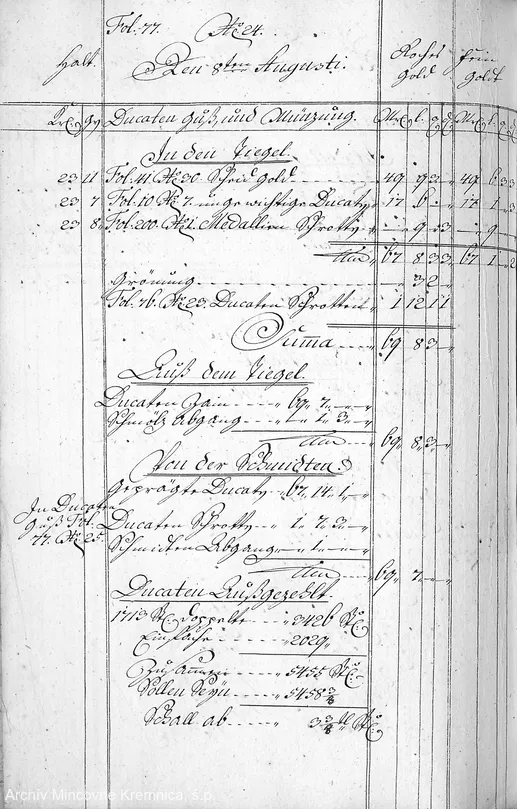 Fol: 77. No: 24.
Halt. Den 8ten Augusti. Roches Gold fein Goldt
Krt: gr: Ducaten Guß, und Münzung. Mr: l: q: d: Mr: l: q: d:
In den Tiegel.
23 11 Fol: 41. No: 30. Scheid Gold 49 93 49 6 33
23 7 Fol: 10 No: 7. ungewichtige Ducaty 17 6 17 1 3
23 8 Fol: 200. No: 1. Medallien Schrotty 9 3 9
Thut 67 8 33 67 1 2
Grönung 32
Fol: 76. No: 23. Ducaten Schrotten 1 12 11
Summa 69 83
Auß dem Tiegel.
Ducaten Zain 69 7
Schmölz Abgang 1 3
Thut 69 8 3
Von der Schmidten.
Geprägte Ducaty 67 14 1
In Ducaten Guß Fol: 77. No: 25. Ducaten Schrotty 1 7 3
Schmidten Abgang 1
Thut 69 7
Ducaten Außgezehlt.
1713 Stu: Doppelte 3426 Stu:
Einfache 2029
Zusammen 5455 Stu:
Sollen Seyn 5458 3/8
Schall ab 3 3/8 tl Stu:
Archív Mincovne Kremnica, š.p.